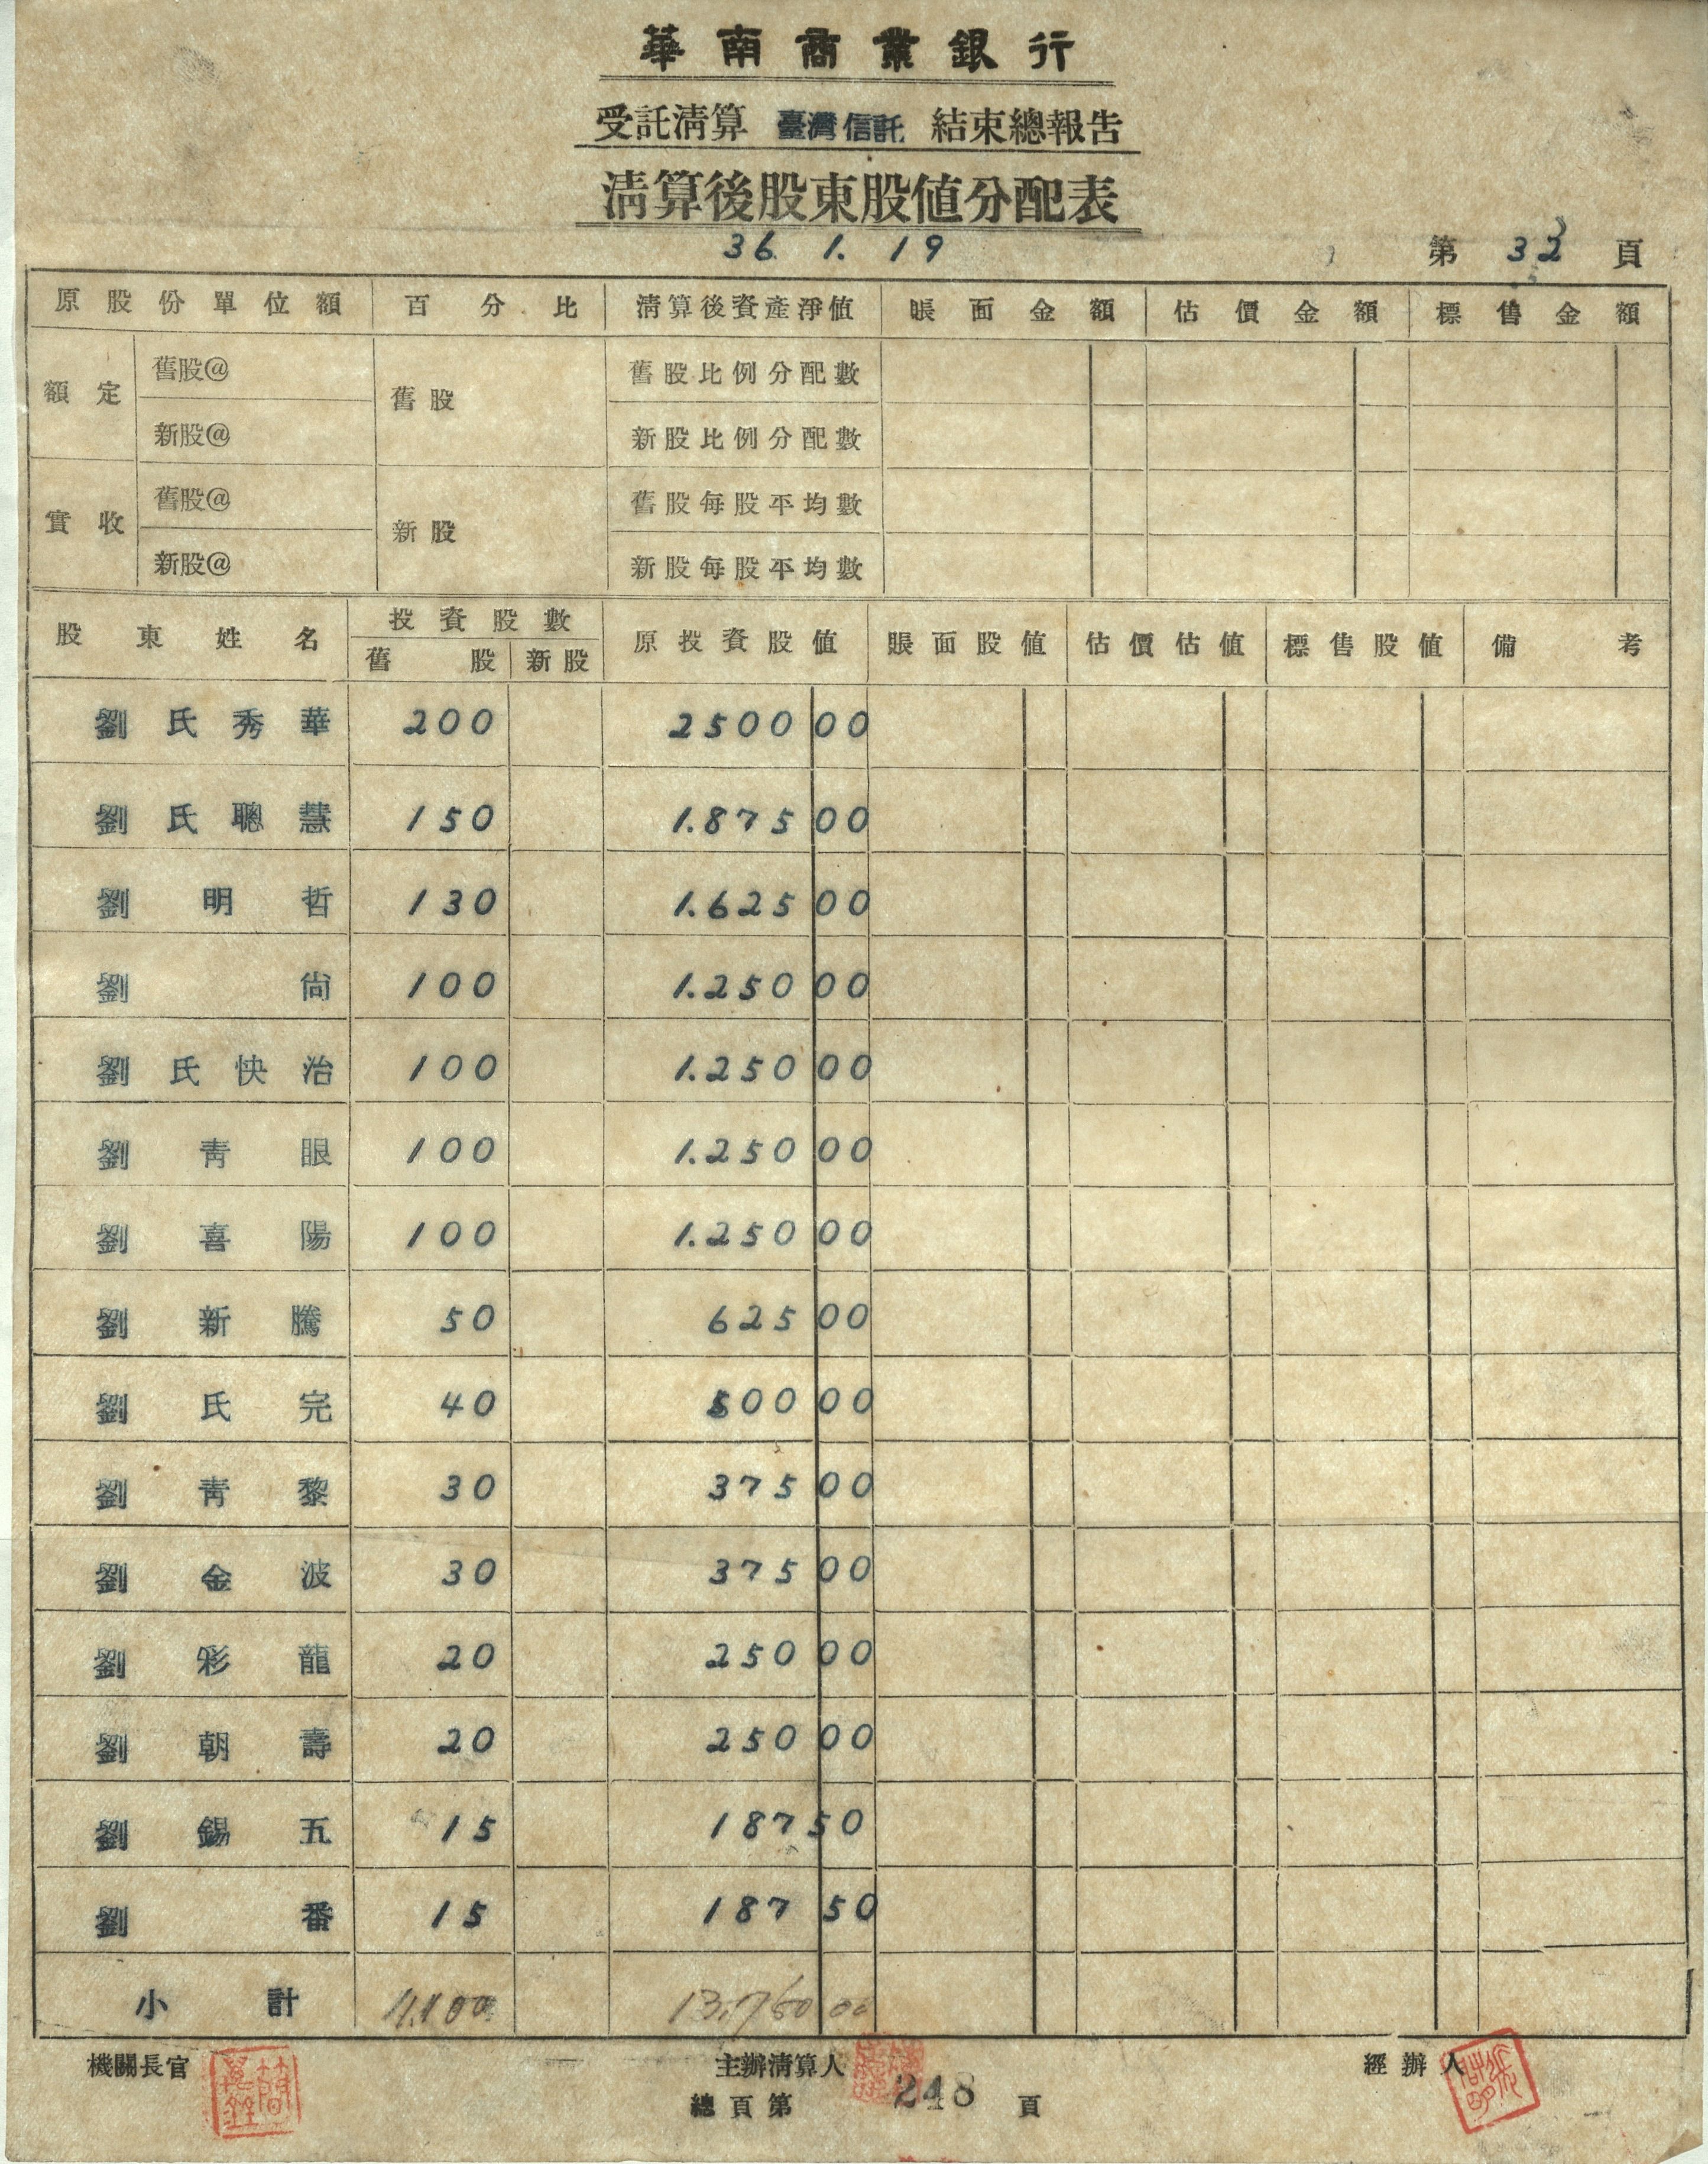 華南商業銀行
受託清算 臺灣信託 結束總報告
清算後股東股值分配表
36. 1. 19
第 32 頁
原股份單位額 百分比 清算後資產淨值 賬面金額 估價金額 標售金額
額定 舊股@ 舊股 舊股比例分配數
新股@ 新股比例分配數
實收 舊股@ 新股 舊股每股平均數
新股@ 新股每股平均數
股東姓名 投資股數 原投資股值 賬面股值 估價估值 標售股值 備考
舊股 新股
劉氏秀華 200 2500 00
劉氏聰慧 150 1.875 00
劉明哲 130 1.625 00
劉尙 100 1.250 00
劉氏快治 100 1.250 00
劉青眼 100 1.250 00
劉喜陽 100 1.250 00
劉新騰 50 625 00
劉氏完 40 500 00
劉青黎 30 375 00
劉金波 30 375 00
劉彩龍 20 250 00
劉朝壽 20 250 00
劉錫五 15 187 50
劉番 15 187 50
小計 1,100 13,750 00
機關長官 主辦清算人 經辦人
總頁第 248 頁